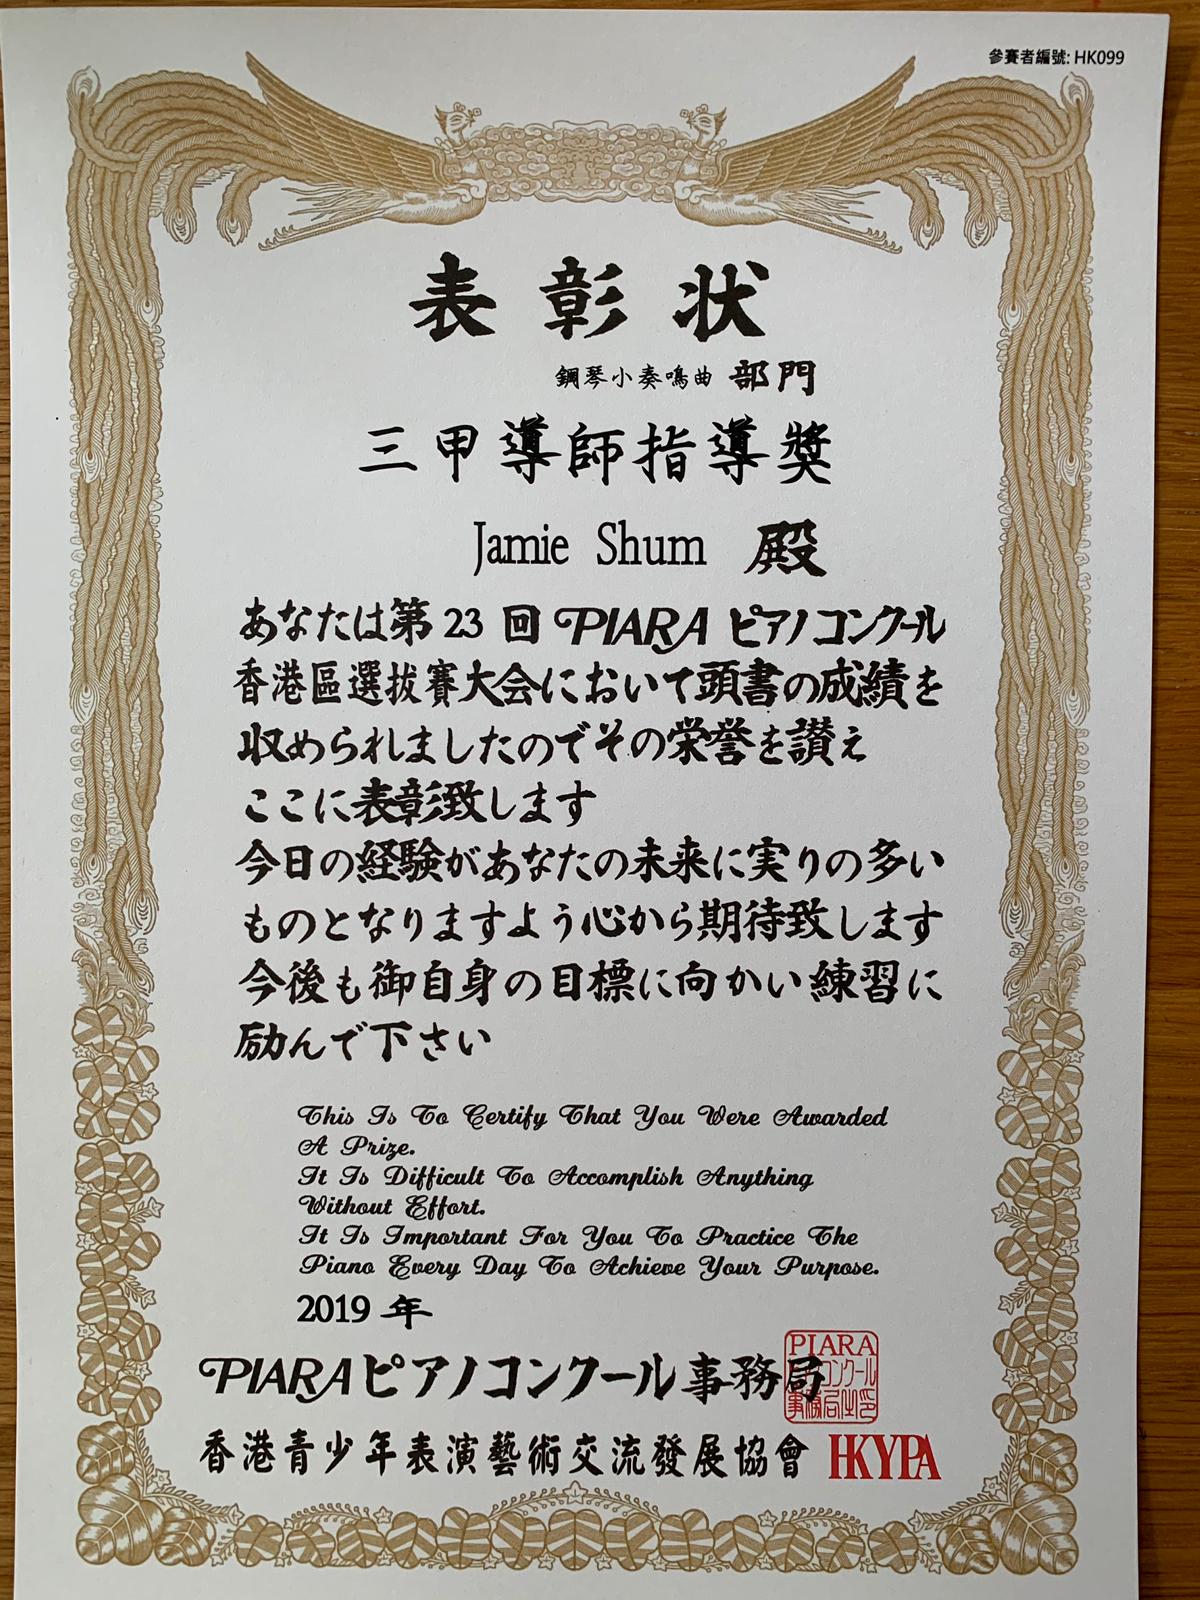 參賽者編號: HK099
表彰状
鋼琴小奏鳴曲 部門
三甲導師指導獎
Jamie Shum 殿
あなたは第 23 回 PIARA ピアノコンクール
香港區選拔賽大会において頭書の成績を
収められましたのでその栄誉を讃え
ここに表彰致します
今日の経験があなたの未来に実りの多い
ものとなりますよう心から期待致します
今後も御自身の目標に向かい練習に
励んで下さい
This Is To Certify That You Were Awarded
A Prize.
It Is Difficult To Accomplish Anything
Without Effort.
It Is Important For You To Practice The
Piano Every Day To Achieve Your Purpose.
2019 年
PIARA ピアノコンクール事務局
PIARA
香港青少年表演藝術交流發展協會 HKYPA